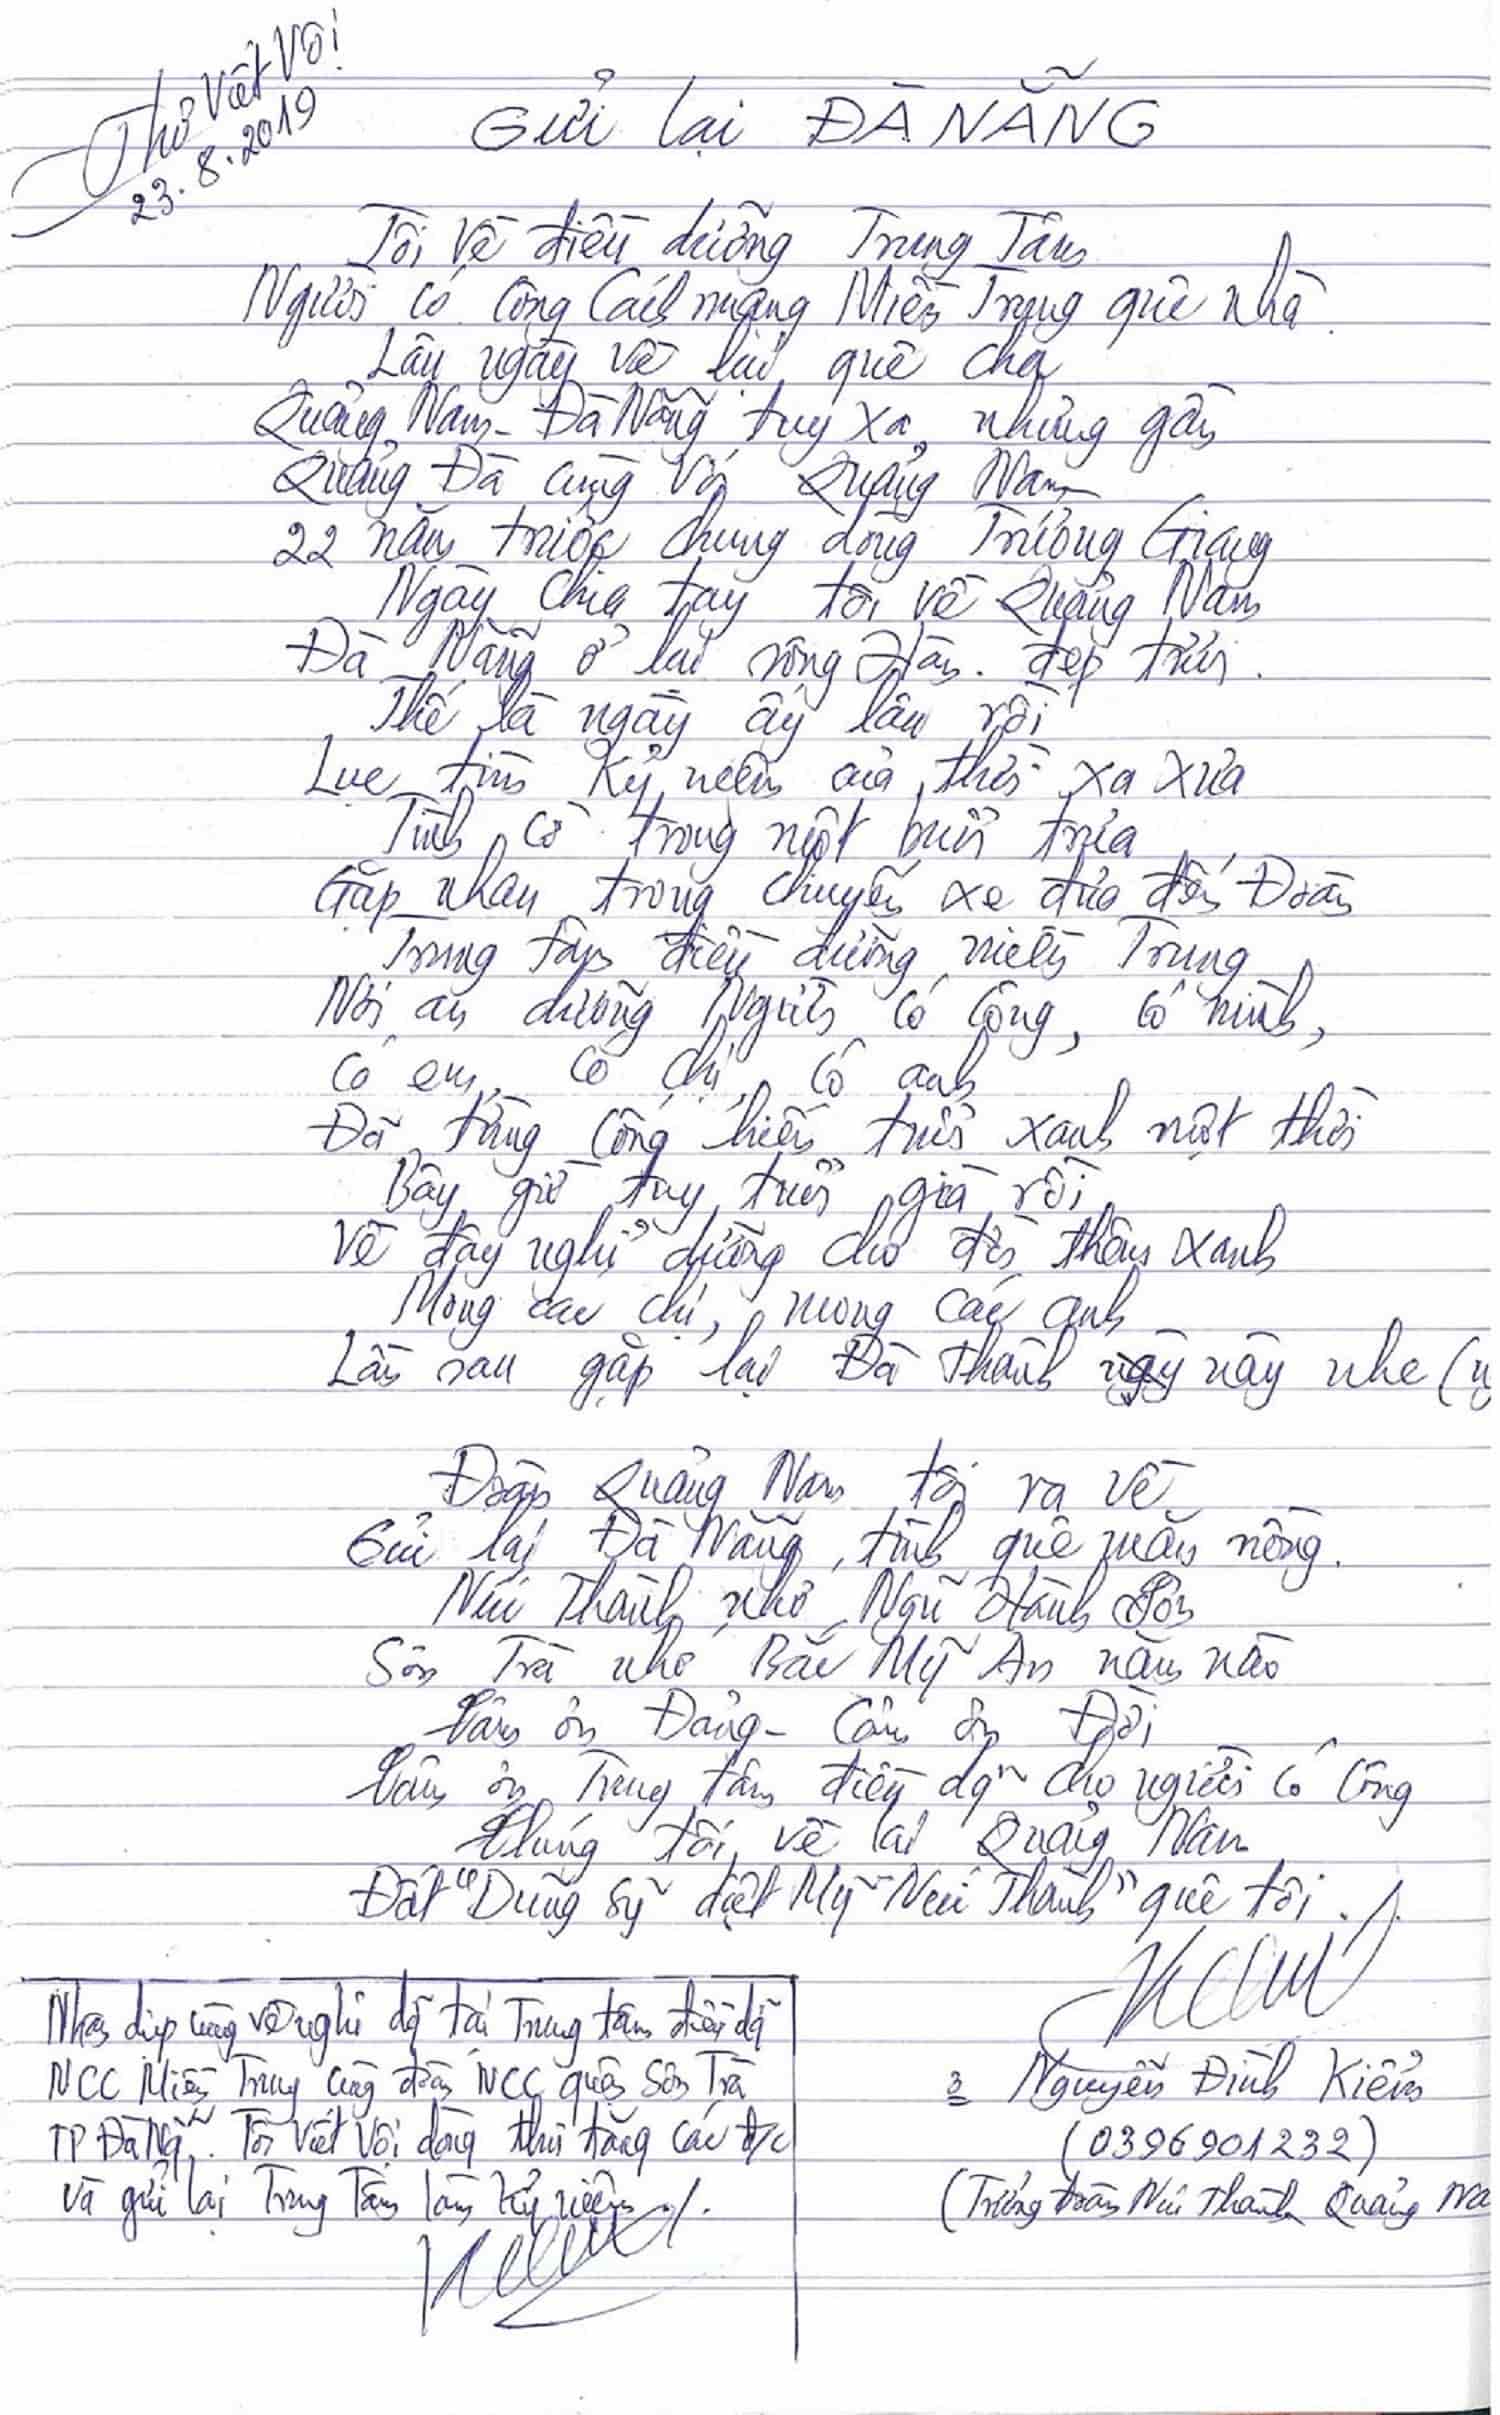 Thơ Viết Vội
23.8.2019
GỬi lại ĐÀ NẴNG
Tôi về điều dưỡng Trung Tâm
Người có công Cách mạng Miền Trung quê nhà.
Lâu ngày về lại quê cha
Quảng Nam - Đà Nẵng tuy xa nhưng gần
Quảng Đà cùng với Quảng Nam
22 năm trước chung dòng Trường Giang
Ngày chia tay tôi về Quảng Nam
Đà Nẵng ở lại sông Hàn. đẹp tươi.
Thế là ngày ấy lâu rồi
Lục tìm kỷ niệm của thời xa xưa
Tình cờ trong một buổi trưa
Gặp nhau trong chuyến xe đưa đón Đoàn
Trung tâm điều dưỡng miền Trung
Nơi an dưỡng Người có công, có mình,
có em, có chị, có anh
Đã từng cống hiến tuổi xanh một thời
Bây giờ tuy tuổi già rồi
Về đây nghỉ dưỡng cho đời thêm xanh
Mong các chị, mong các anh
Lần sau gặp lại Đà Thành ngày này nhe (
Đoàn Quảng Nam tôi ra về
Gửi lại Đà Nẵng, tình quê mặn nồng.
Núi Thành nhớ Ngũ Hành Sơn
Sơn Trà nhớ Bắc Mỹ An năm nào
Cảm ơn Đảng - Cảm ơn Đời
Cảm ơn Trung tâm điều dg~ cho người có công
Chúng tôi về lại Quảng Nam
Đất "Dũng sỹ diệt Mỹ Núi Thành" quê tôi ./.
Nhân dịp cùng về nghỉ dg~ tại Trung tâm điều dg~
NCC Miền Trung cùng đoàn NCC quận Sơn Trà
TP Đà Ng~. Tôi viết vội dòng thơ tặng các đ/c
và gửi lại Trung Tâm làm kỷ niệm ./.
Nguyễn Đình Kiểm
(0396901232)
(Trưởng đoàn Núi Thành Quảng Na